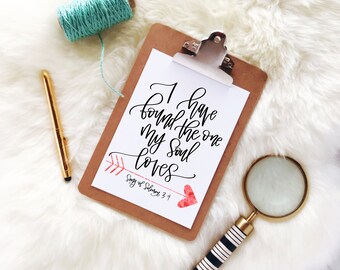 I have
found the one
my soul
loves
Song of Solomon 3:4